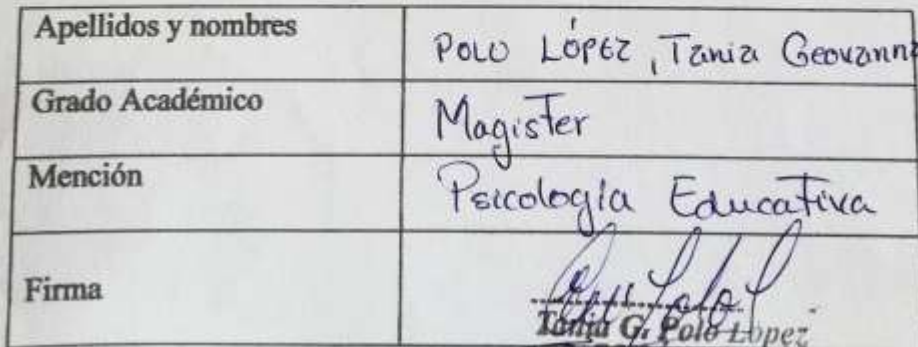 Apellidos y nombres
POLO LÓPEZ, Tania Geovanna
Grado Académico
Magister
Mención
Psicología Educativa
Firma
Tania G. Polo López